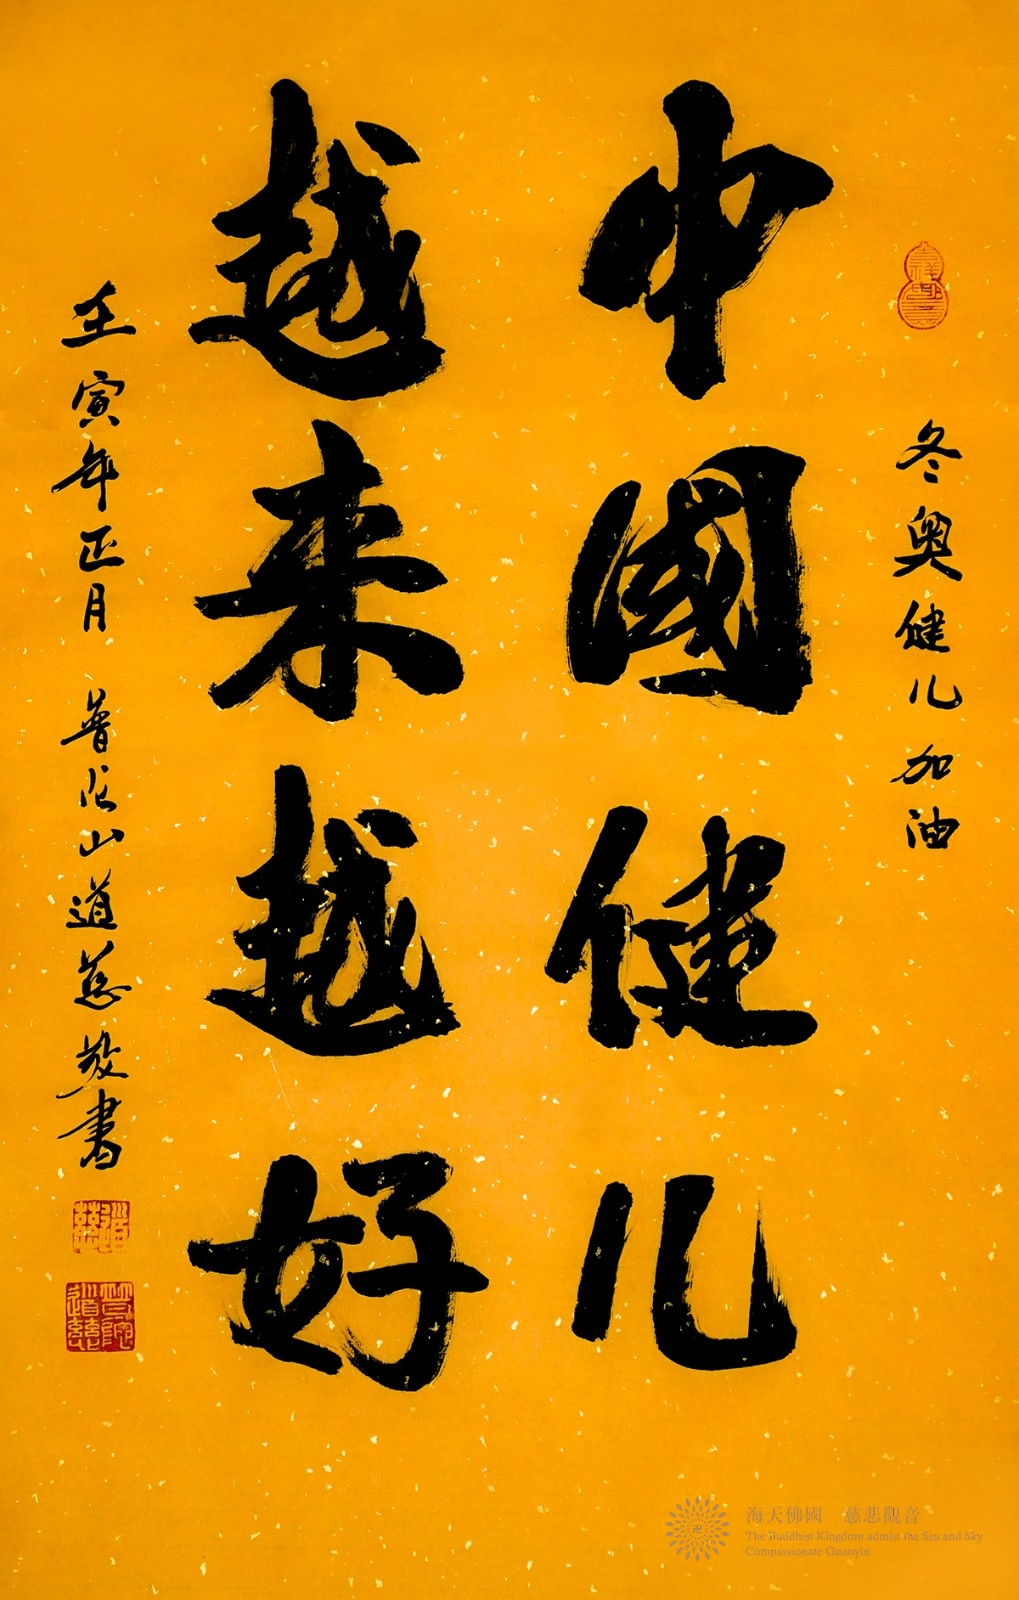 冬奥健儿加油
中國健儿
越来越好
壬寅年正月 普陀山道慈敬書
道慈
海天佛國 慈悲觀音
The Buddhist Kingdom admist the Sea and Sky
Compassionate Guanyin